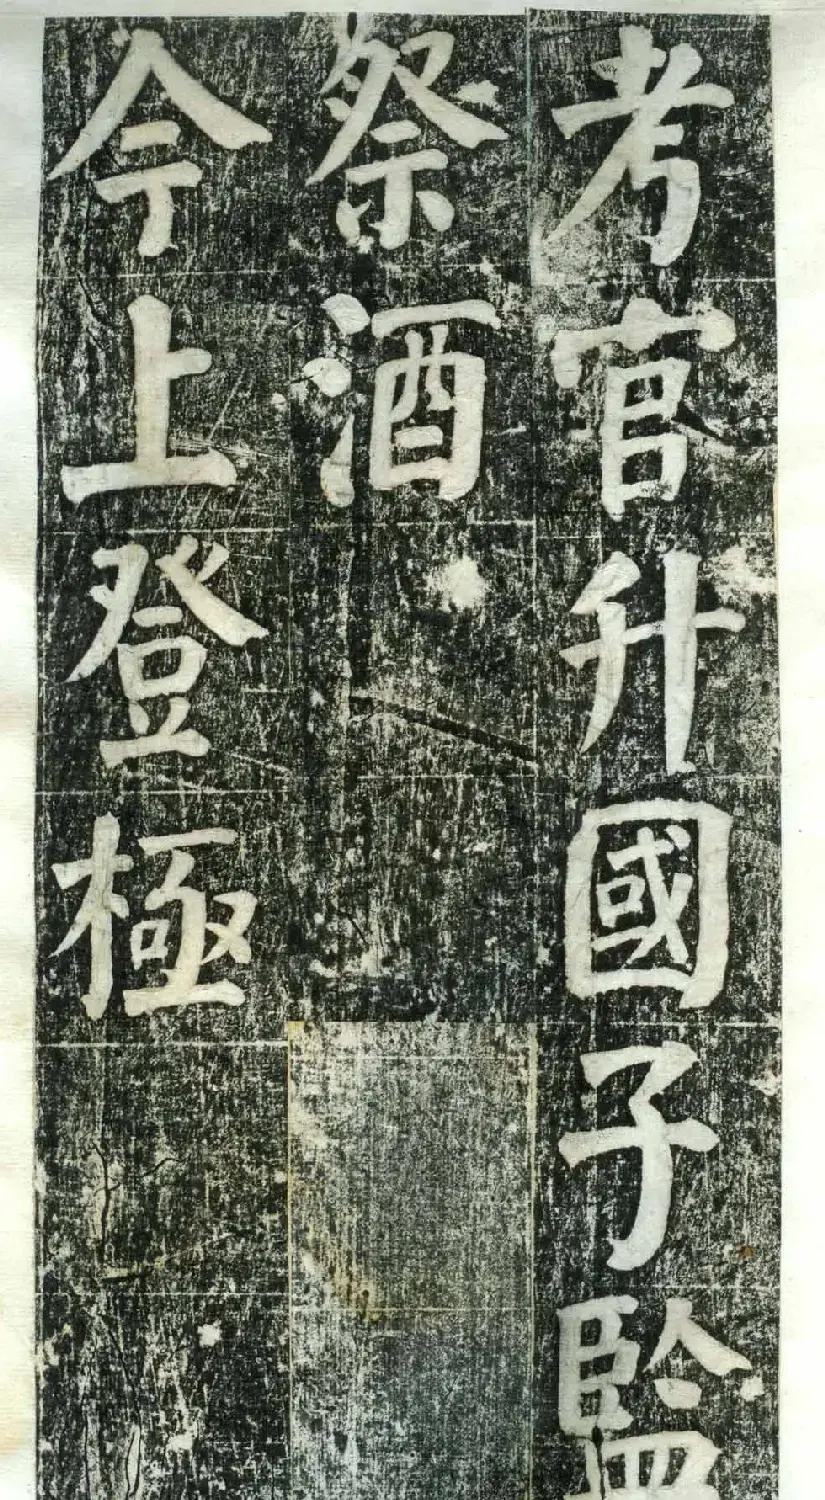 考官升國子監
祭酒
今上登極